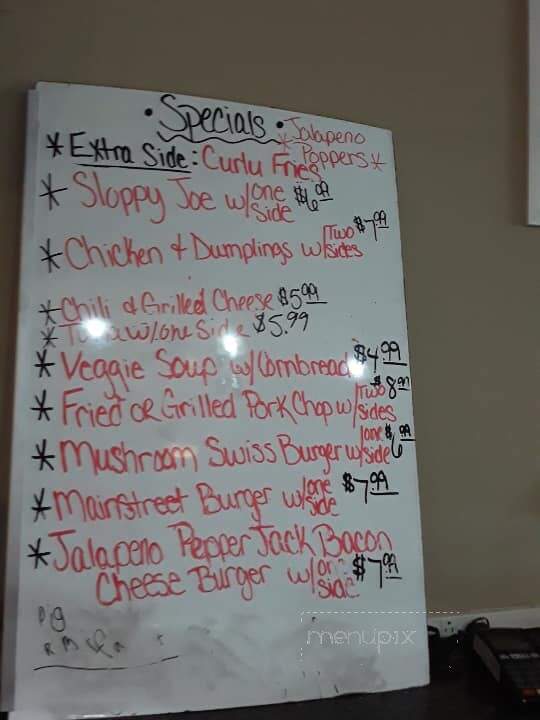 • Specials •
*Jalapeno Poppers*
* Extra Side: Curlu Fries
* Sloppy Joe w/one side $6.99
* Chicken & Dumplings w/Two sides $7.99
* Chili & Grilled Cheese $5.99
* w/one Side $5.99
* Veggie Soup w/Cornbread $4.99
* Fried or Grilled Pork Chop w/Two sides $8.99
* Mushroom Swiss Burger w/one side $6.99
* Mainstreet Burger w/one side $7.99
* Jalapeno Pepper Jack Bacon
Cheese Burger w/one side $7.99
menupix